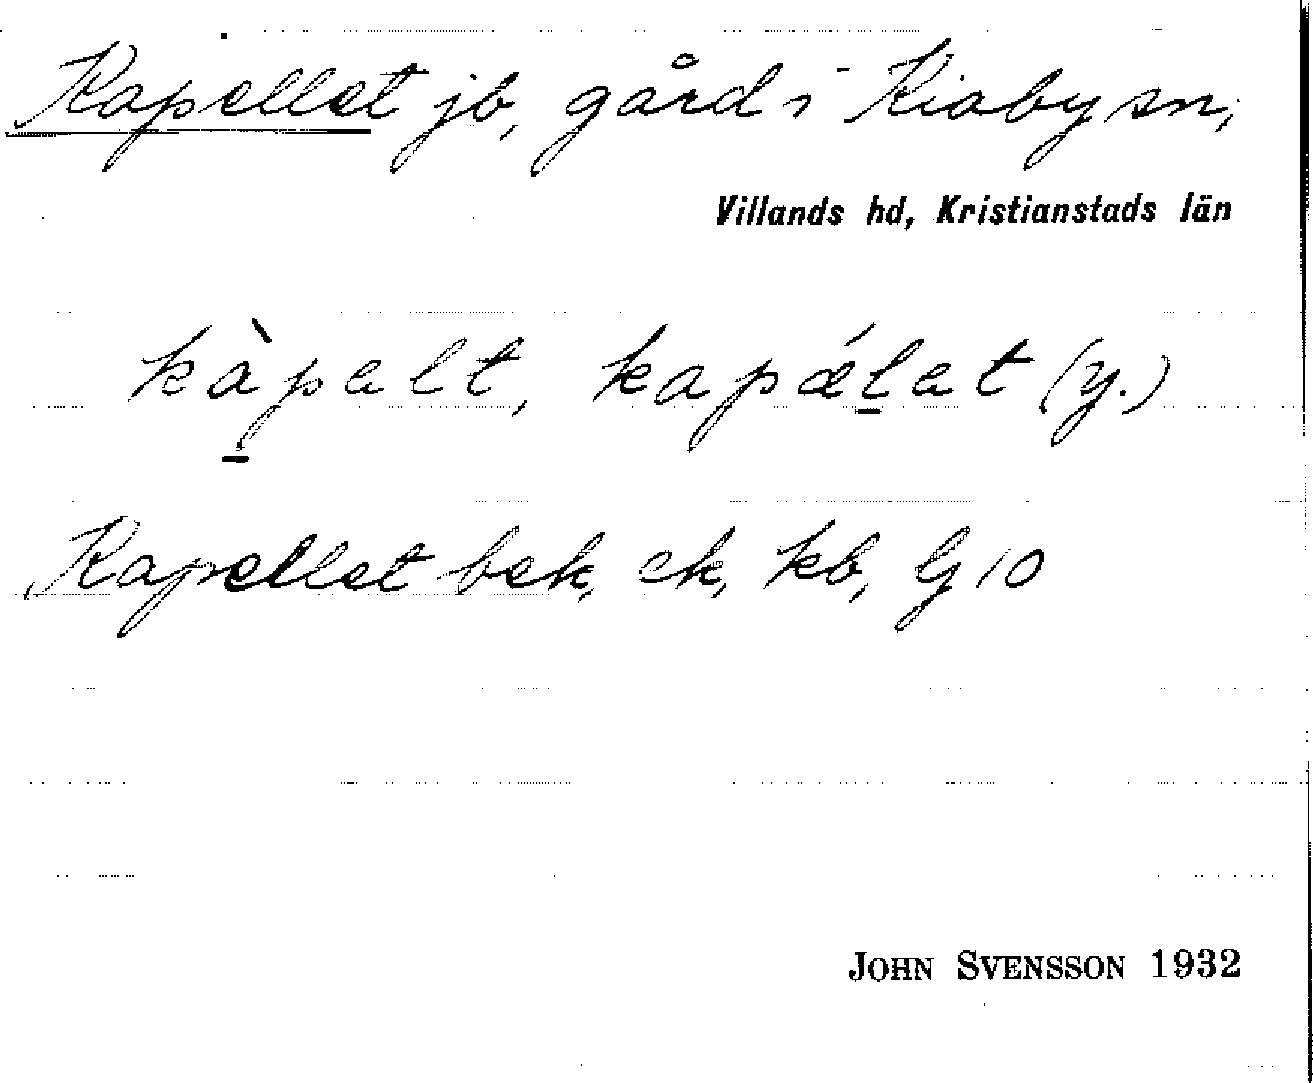 Kapellet jb, gård i Kiaby sn,
Villands hd, Kristianstads län
kàpalt, kapǽlat (y.)
Kapellet bek, ek, kb, G 10
JOHN SVENSSON 1932